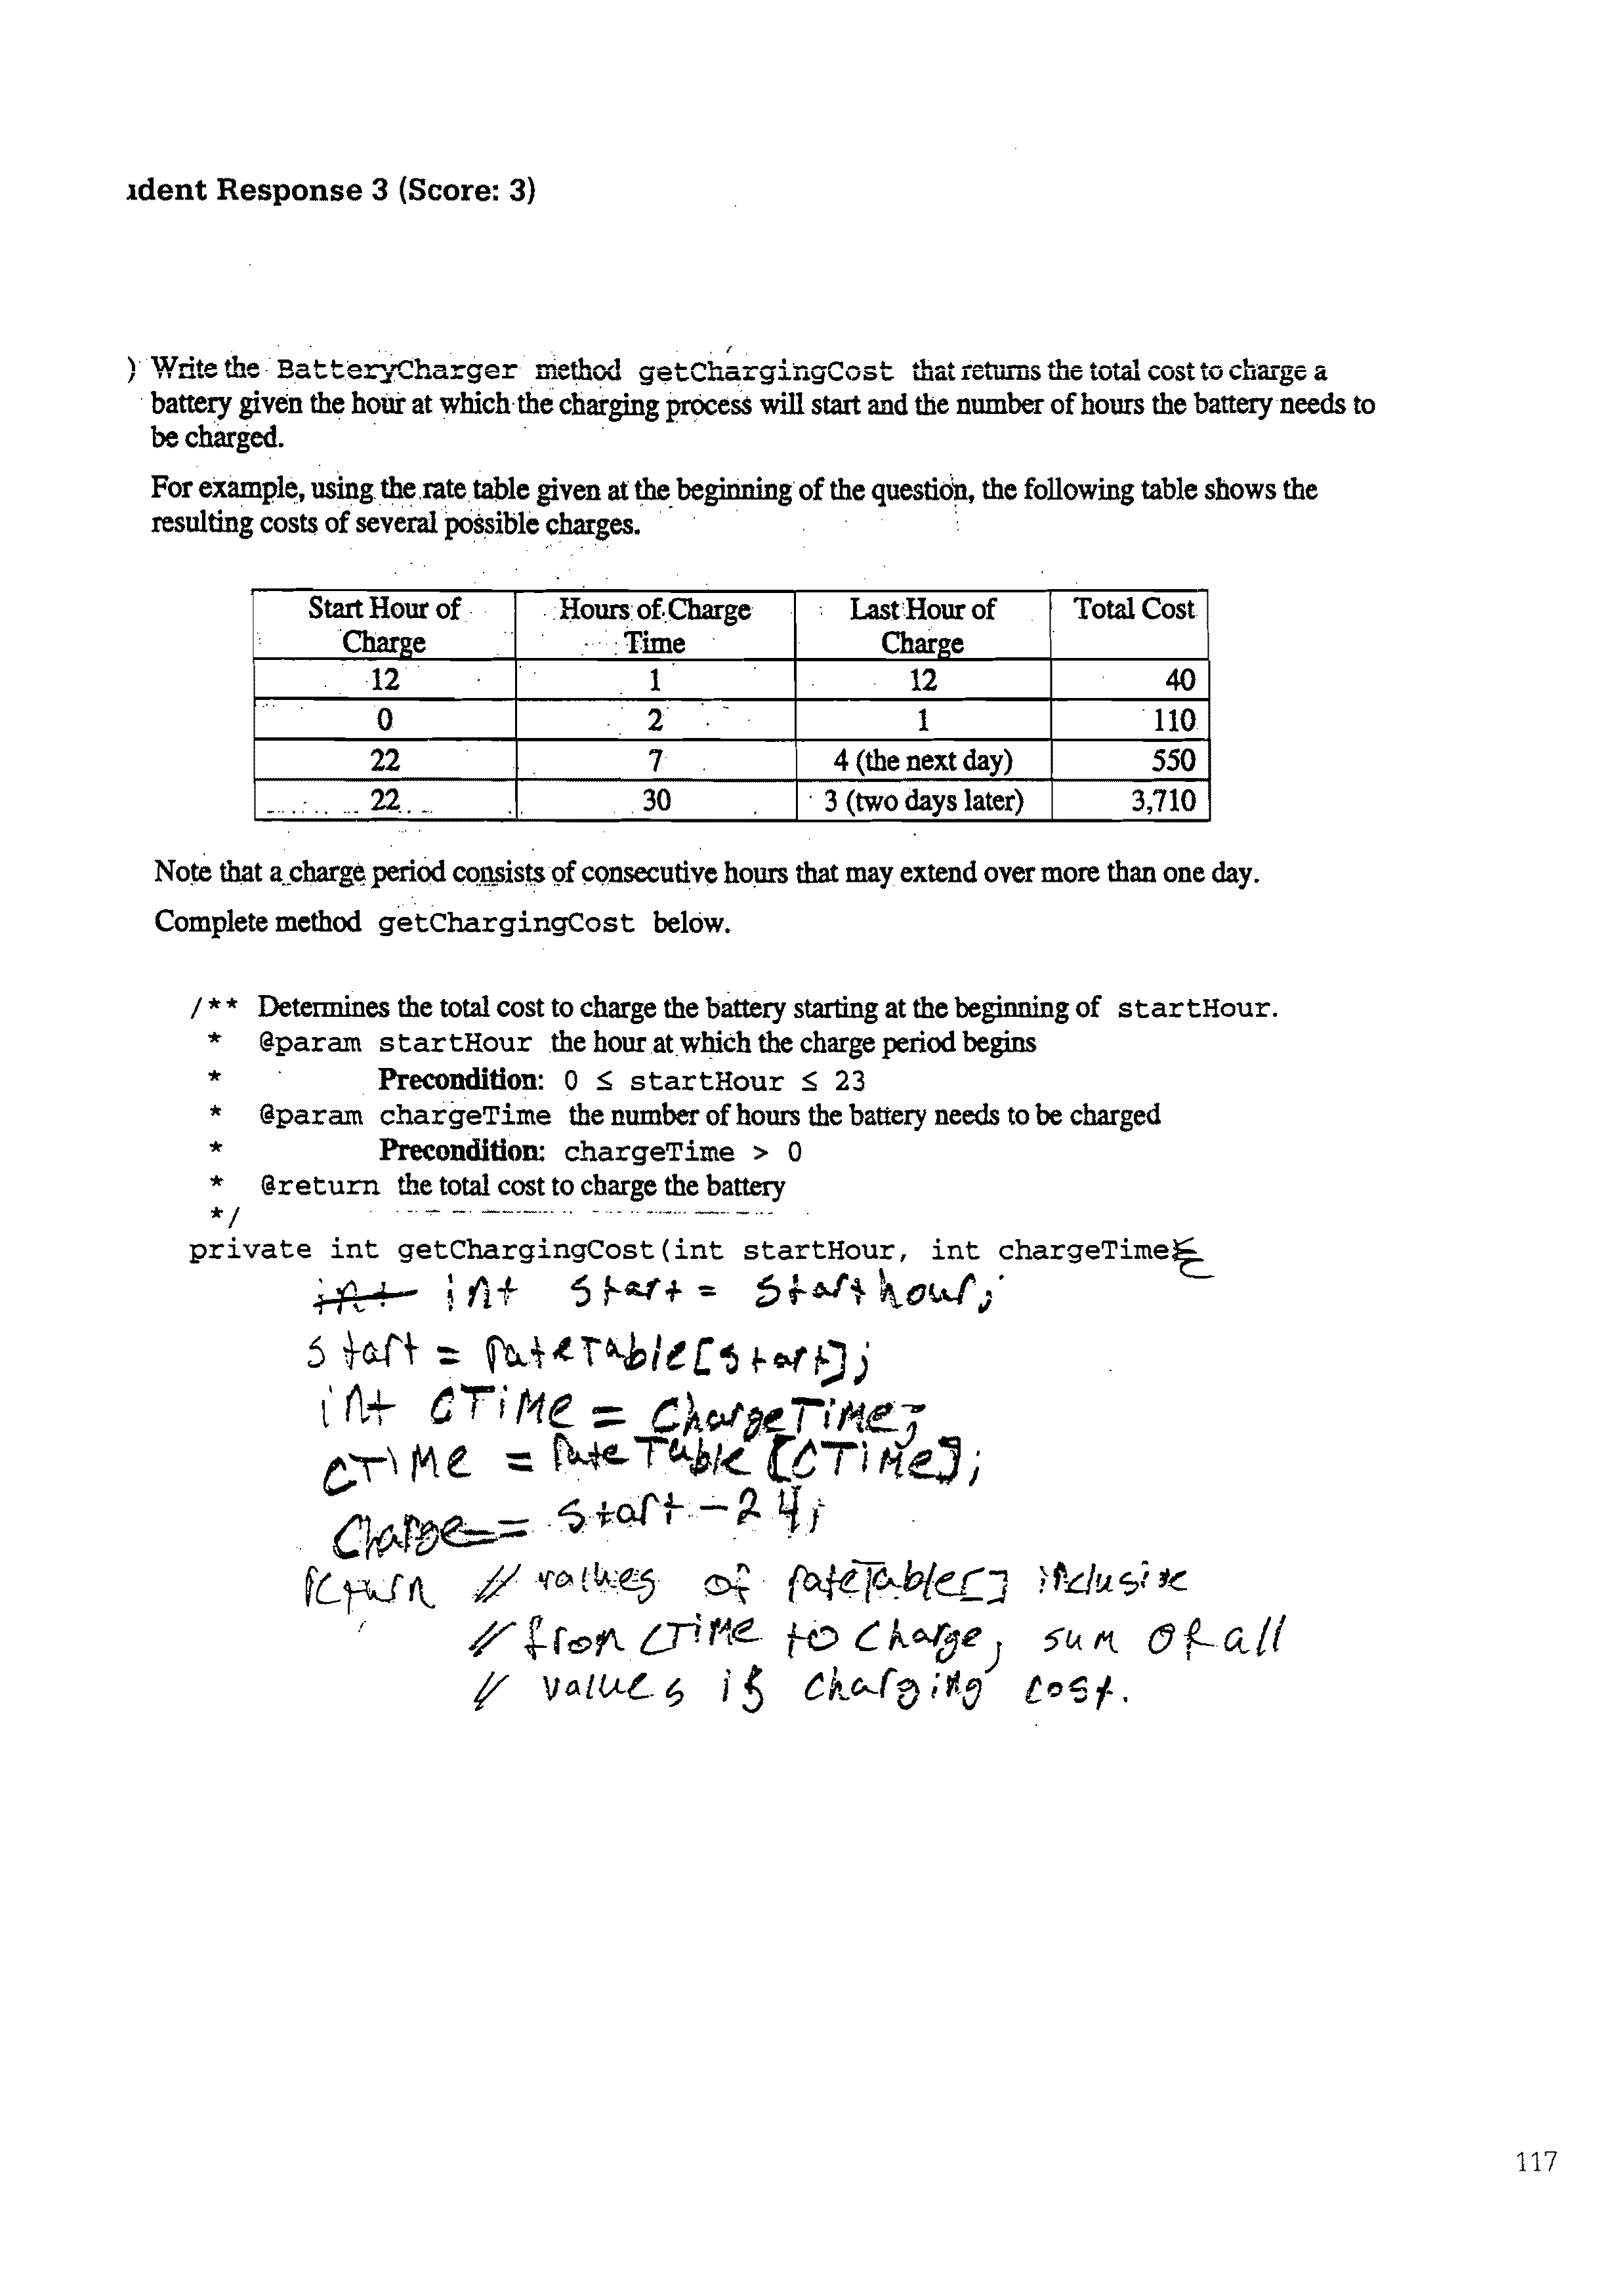 ıdent Response 3 (Score: 3)
) Write the BatteryCharger method getChargingCost that returns the total cost to charge a
battery given the hour at which the charging process will start and the number of hours the battery needs to
be charged.
For example, using the rate table given at the beginning of the question, the following table shows the
resulting costs of several possible charges.
Start Hour of Charge | Hours of Charge Time | Last Hour of Charge | Total Cost
12 | 1 | 12 | 40
0 | 2 | 1 | 110
22 | 7 | 4 (the next day) | 550
22 | 30 | 3 (two days later) | 3,710
Note that a charge period consists of consecutive hours that may extend over more than one day.
Complete method getChargingCost below.
/** Determines the total cost to charge the battery starting at the beginning of startHour.
* @param startHour the hour at which the charge period begins
* Precondition: 0 ≤ startHour ≤ 23
* @param chargeTime the number of hours the battery needs to be charged
* Precondition: chargeTime > 0
* @return the total cost to charge the battery
*/
private int getChargingCost(int startHour, int chargeTime
int start = starthour;
start = rateTable[start];
int CTiMe = chargeTiMe;
CTiMe = rateTable[CTiMe];
Charge = start - 24;
return // values of rateTable[] inclusive
// from CTiMe to Charge, sum of all
// values is charging cost.
117